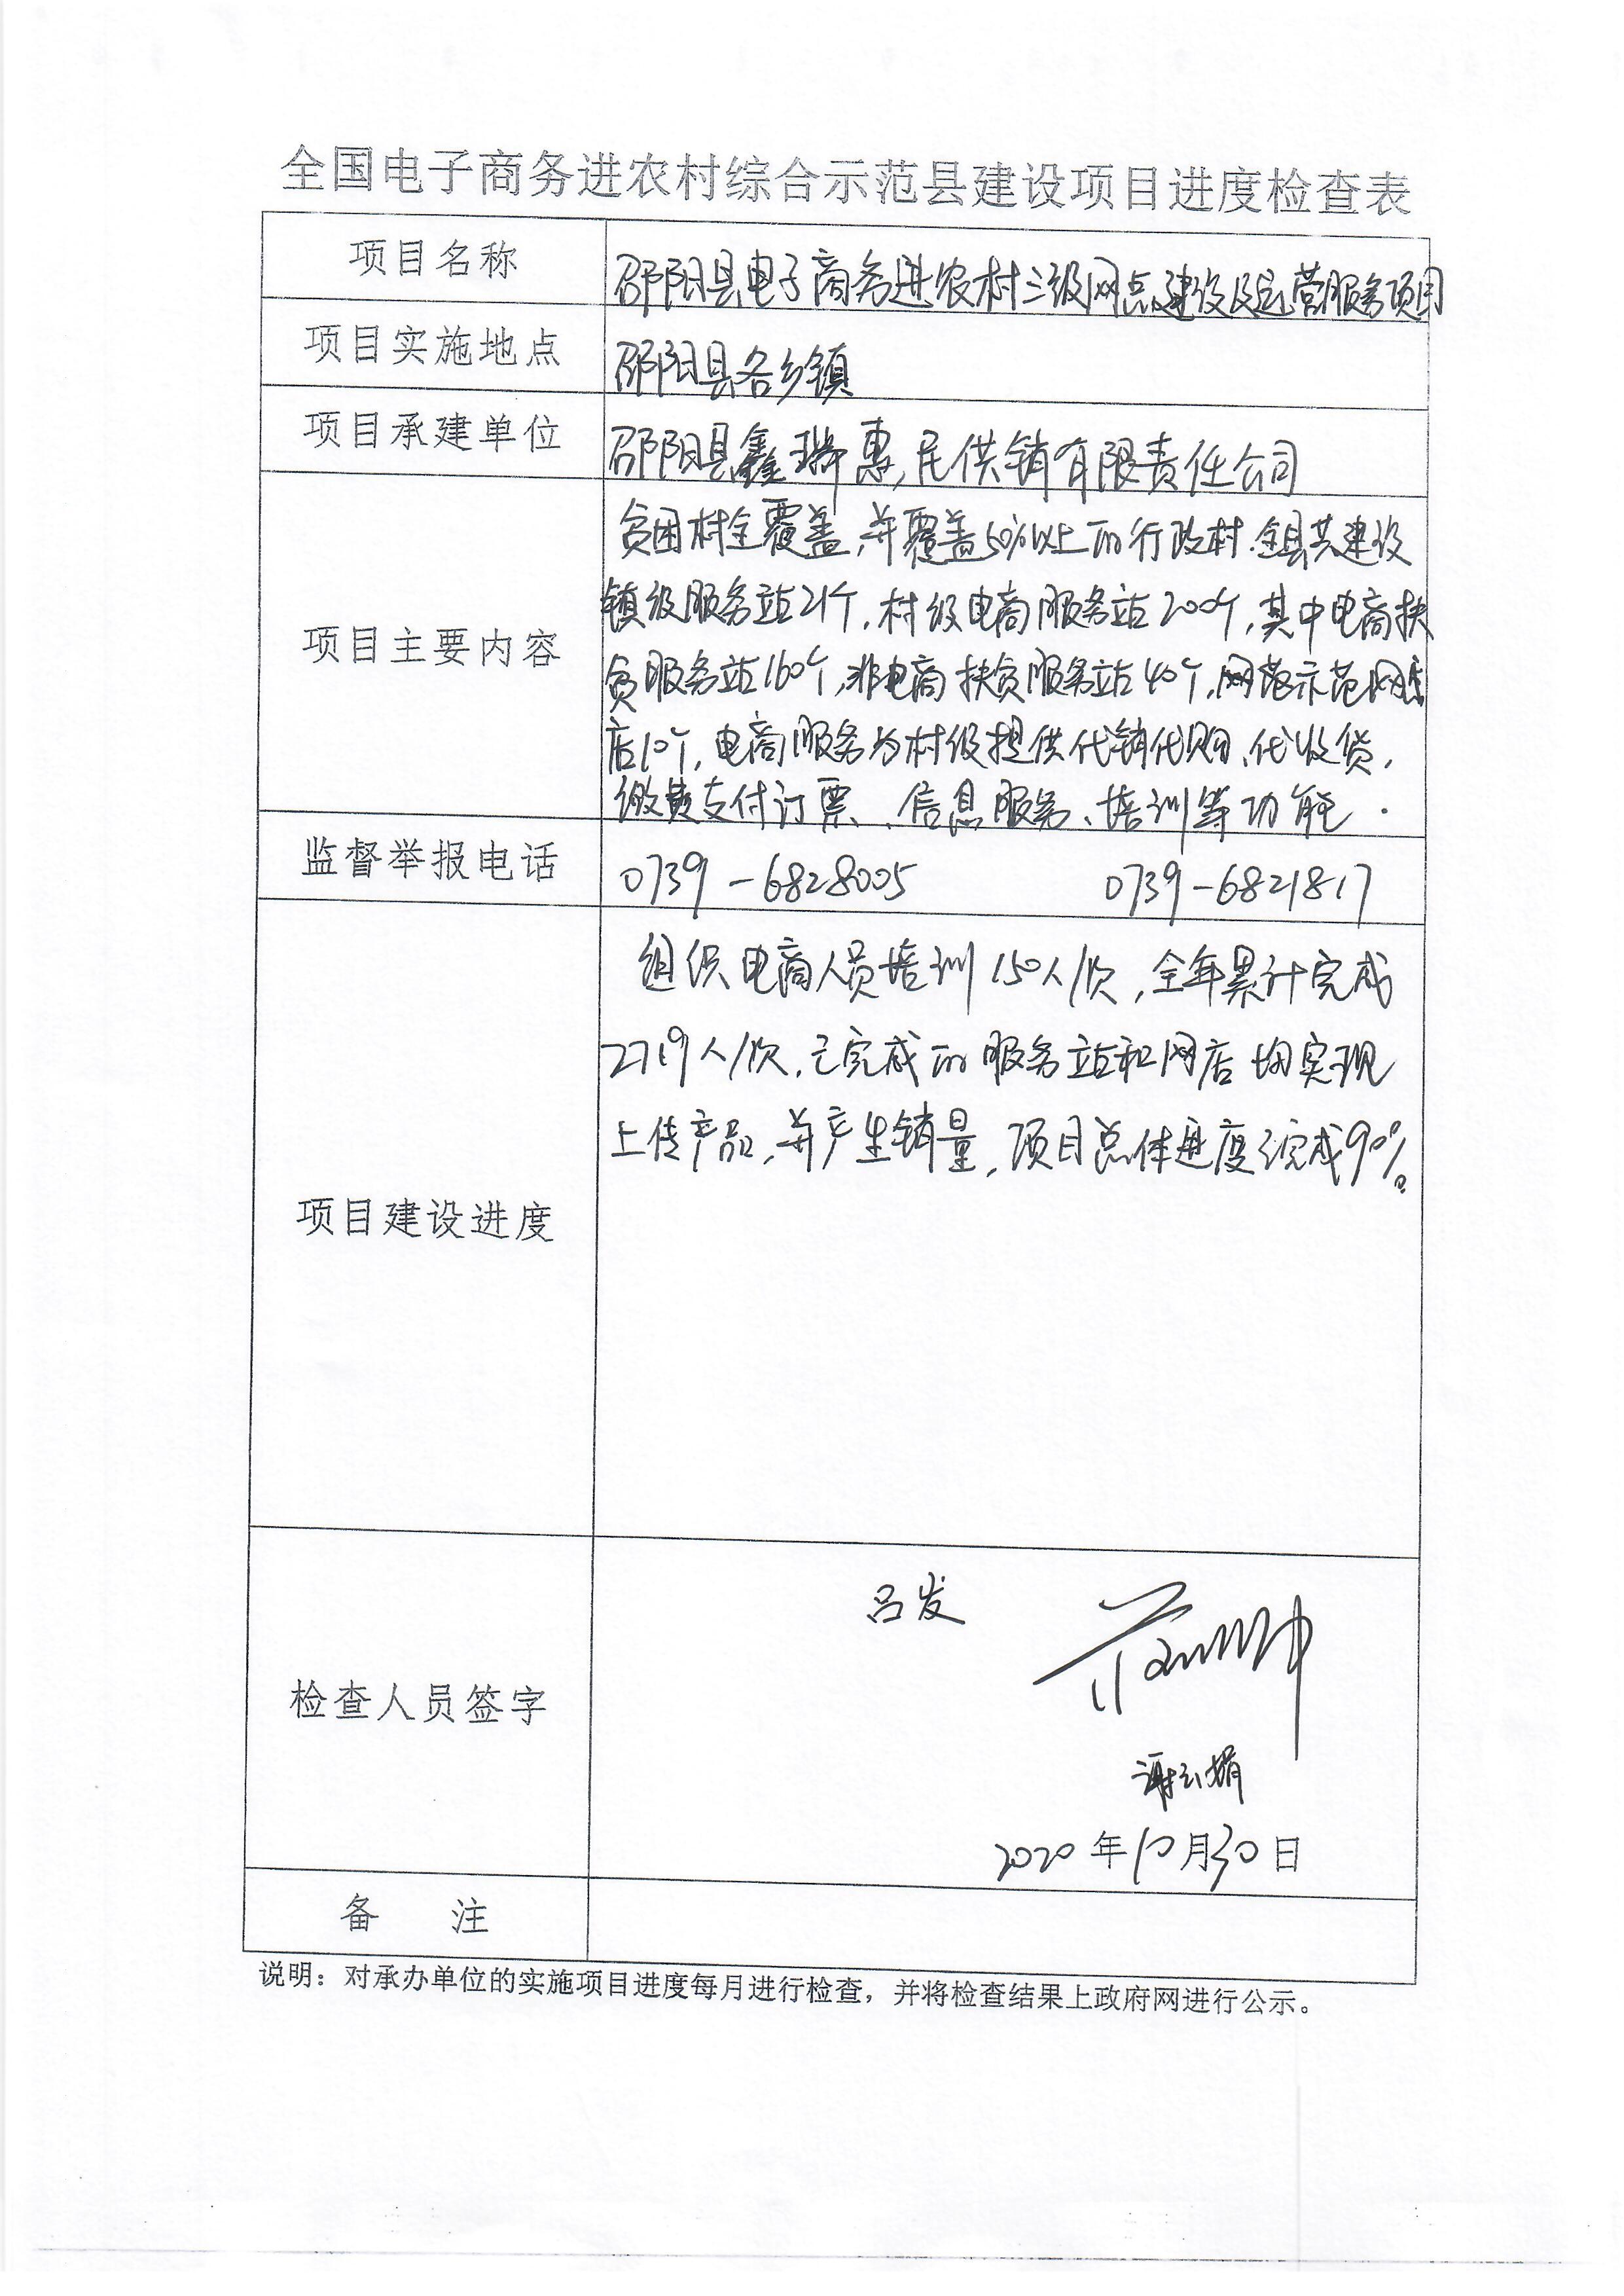 全国电子商务进农村综合示范县建设项目进度检查表
项目名称
邵阳县电子商务进农村三级网点建设及运营服务项目
项目实施地点
邵阳县各乡镇
项目承建单位
邵阳县鑫瑞惠民供销有限责任公司
项目主要内容
贫困村全覆盖,并覆盖50%以上的行政村.全县共建设
镇级服务站21个,村级电商服务站200个,其中电商扶
贫服务站160个,非电商扶贫服务站40个,示范网
店10个,电商服务为村级提供代销代购、代收货,
缴费支付订票、信息服务、培训等功能.
监督举报电话
0739-6828005 0739-6821817
项目建设进度
组织电商人员培训150人/次,全年累计完成
2719人/次.已完成的服务站和网店均实现
上传产品,并产生销量,项目总体进度完成90%。
检查人员签字
吕发
谢云娟
2020年10月30日
备 注
说明：对承办单位的实施项目进度每月进行检查，并将检查结果上政府网进行公示。